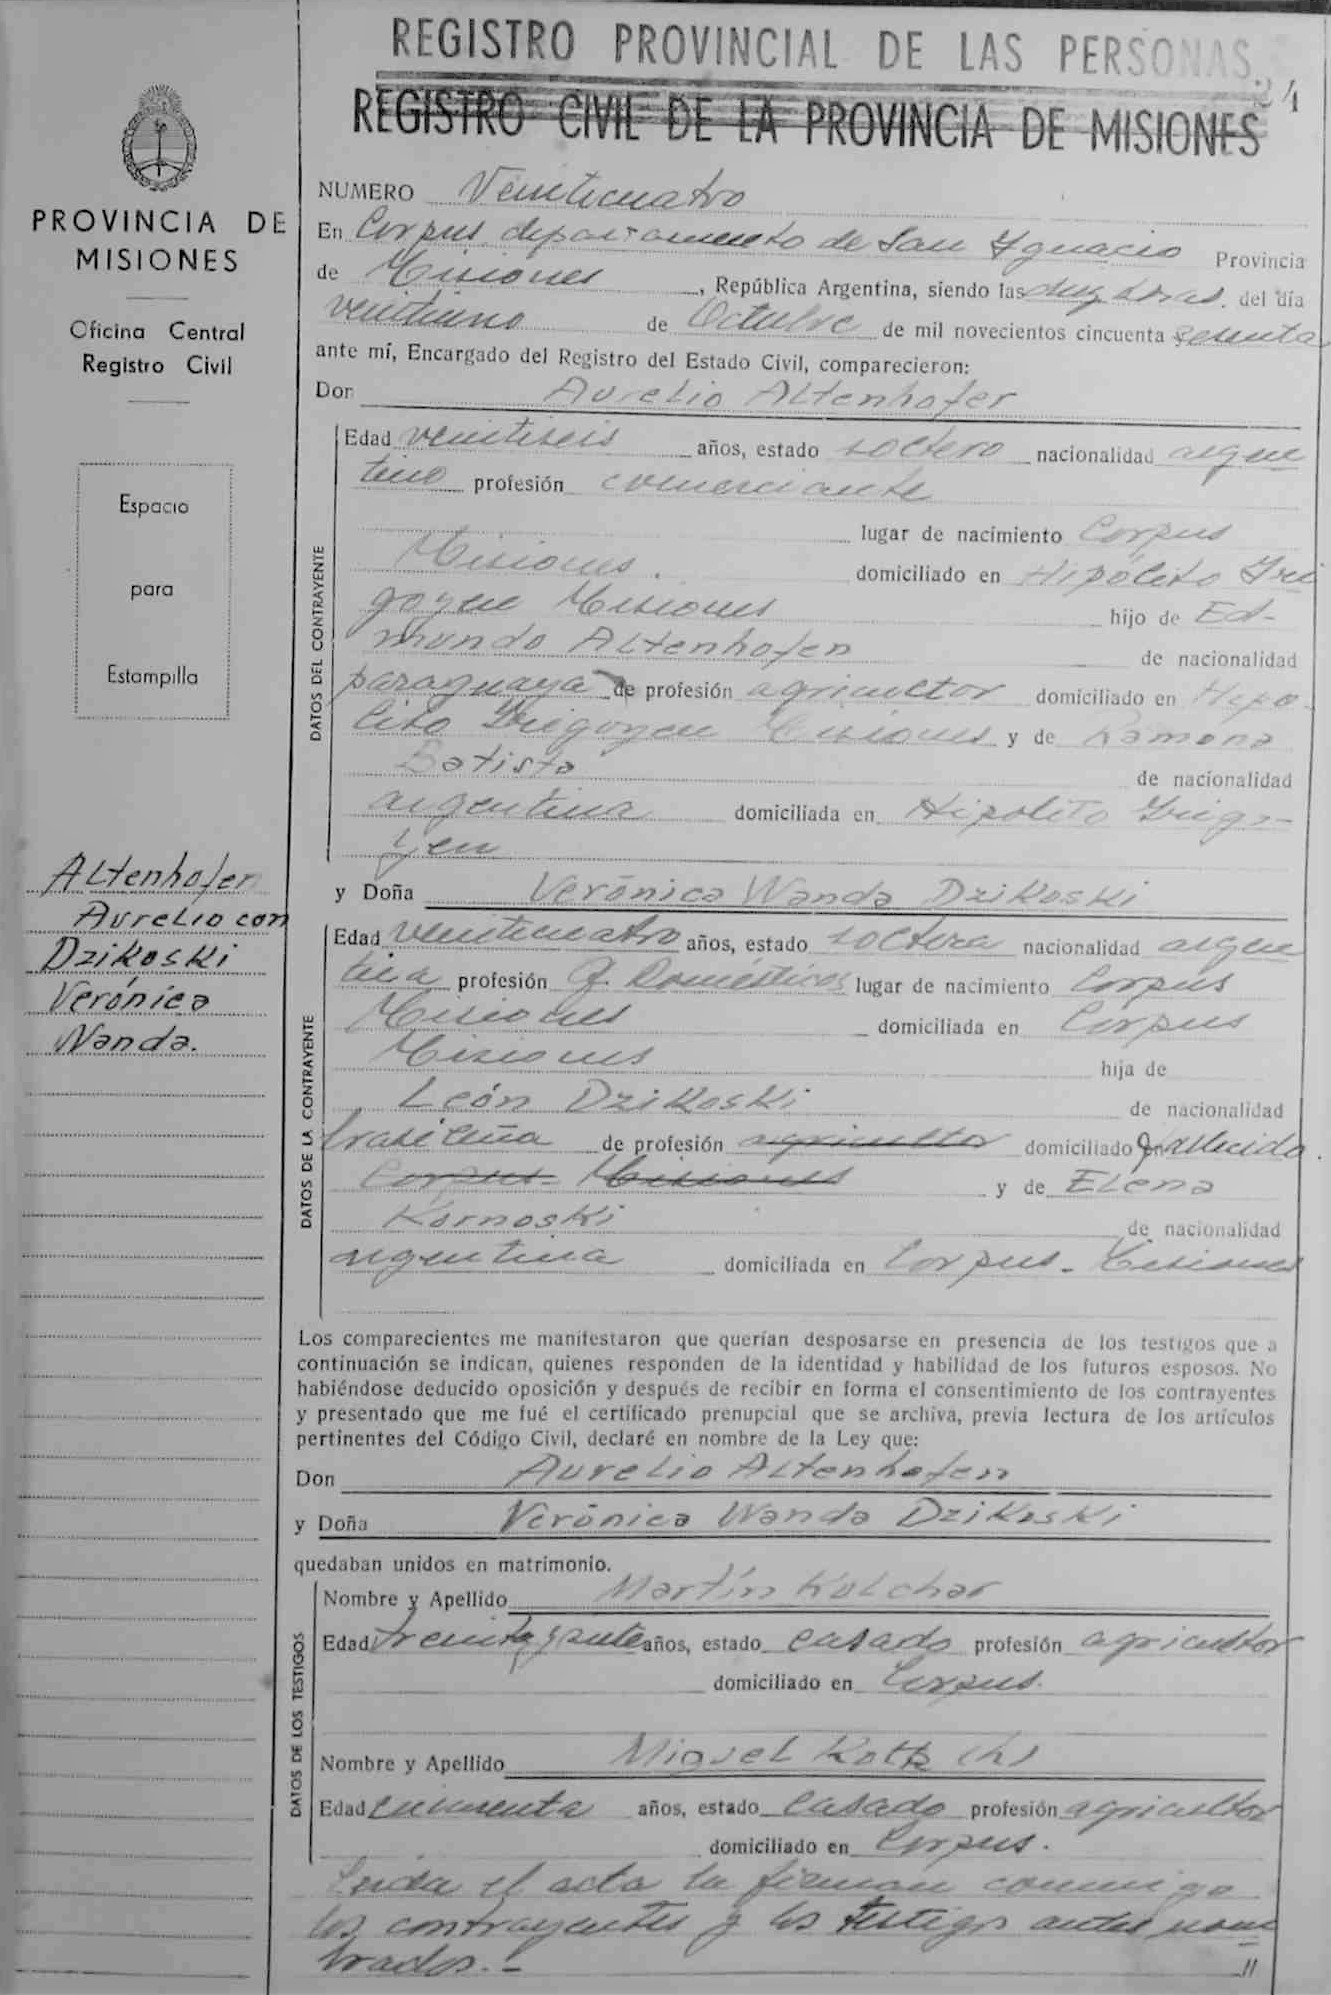 REGISTRO PROVINCIAL DE LAS PERSONAS
24
REGISTRO CIVIL DE LA PROVINCIA DE MISIONES
PROVINCIA DE
MISIONES
Oficina Central
Registro Civil
Espacio
para
Estampilla
Altenhofen
Aurelio con
Dzikoski
Verónica
Wanda.
NUMERO Veinticuatro
En Corpus departamento de San Ygnacio Provincia
de Misiones, República Argentina, siendo las diez horas. del día
veintiuno de Octubre de mil novecientos cincuenta sesenta
ante mí, Encargado del Registro del Estado Civil, comparecieron:
Don Aurelio Altenhofer
DATOS DEL CONTRAYENTE
Edad veintiseis años, estado soltero nacionalidad argen
tino profesión comerciante
lugar de nacimiento Corpus
Misiones. domiciliado en Hipólito Yri
goyen Misiones hijo de Ed-
mundo Altenhofen de nacionalidad
paraguaya de profesión agricultor domiciliado en Hipó
lito Yrigoyen Misiones y de Ramona
Batista de nacionalidad
argentina domiciliada en Hipolito Yrigo-
yen
y Doña Verónica Wanda Dzikoski
DATOS DE LA CONTRAYENTE
Edad veinticuatro años, estado soltera nacionalidad argen
tina profesión Q. Domésticos lugar de nacimiento Corpus
Misiones domiciliada en Corpus
Misiones hija de
León Dzikoski de nacionalidad
brasileña de profesión agricultor domiciliado fallecido.
Corpus- Misiones y de Elena
Kornoski de nacionalidad
argentina domiciliada en Corpus- Misiones
Los comparecientes me manifestaron que querían desposarse en presencia de los testigos que a
continuación se indican, quienes responden de la identidad y habilidad de los futuros esposos. No
habiéndose deducido oposición y después de recibir en forma el consentimiento de los contrayentes
y presentado que me fué el certificado prenupcial que se archiva, previa lectura de los artículos
pertinentes del Código Civil, declaré en nombre de la Ley que:
Don Aurelio Altenhofen
y Doña Verónica Wanda Dzikoski
quedaban unidos en matrimonio.
DATOS DE LOS TESTIGOS
Nombre y Apellido Martín Kolchar
Edad treinta y años, estado casado profesión agricultor
domiciliado en Corpus.
Nombre y Apellido Miguel (h)
Edad cincuenta años, estado casado profesión agricultor
domiciliado en Corpus.
Leida el acta la firman conmigo
los contrayentes y los testigos antes nom
brados.-